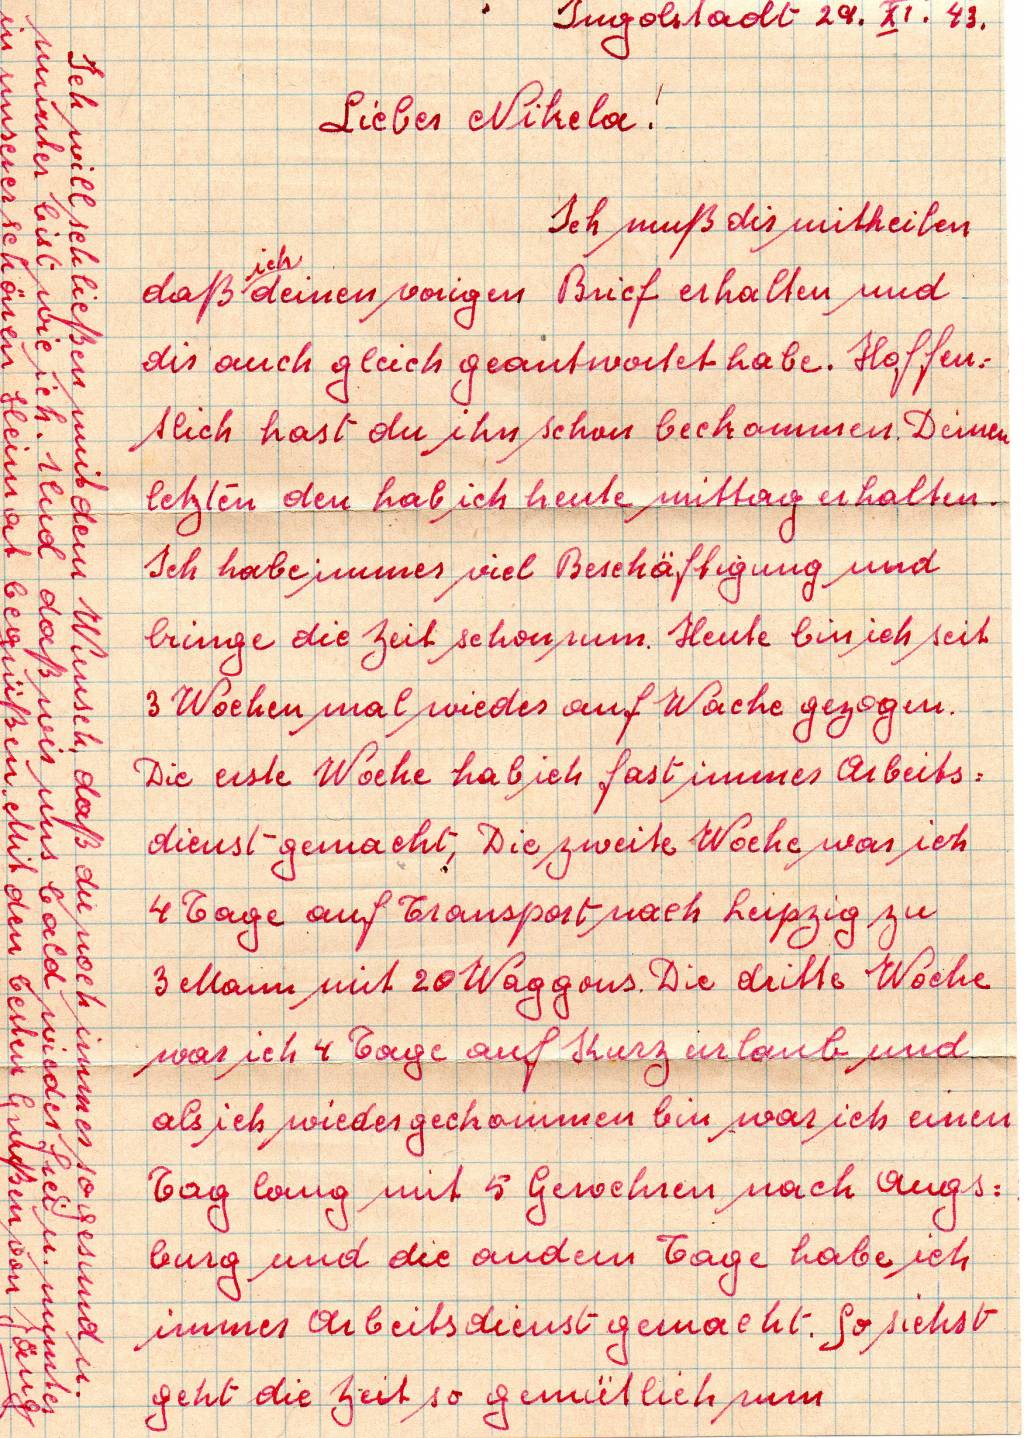 Ingolstadt 29. XI. 43.
Lieber Nikela!
Ich muß dir mitheilen
daß ich deinen vorigen Brief erhalten und
dir auch gleich geantwortet habe. Hoffen=
tlich hast du ihn schon beckommen. Deinen
letzten den hab ich heute mittag erhalten.
Ich habe immer viel Beschäftigung und
bringe die Zeit schon rum. Heute bin ich seit
3 Wochen mal wieder auf Wache gezogen.
Die erste Woche hab ich fast immer Arbeits=
dienst gemacht, Die zweite Woche war ich
4 Tage auf Transport nach Leipzig zu
3 Mann mit 20 Waggons. Die dritte Woche
war ich 4 Tage auf Kurzurlaub und
als ich wieder geckommen bin war ich einen
Tag lang mit 5 Gewehren nach Augs=
burg und die andern Tage habe ich
immer Arbeitsdienst gemacht. So siehst
geht die Zeit so gemütlich rum
Ich will schließen mit dem Wunsch, daß du noch immer so gesund u.
munter bist wie ich. Und daß wir uns bald wieder frei u. munter
in unserer schönen Heimat begrüßen. Mit den besten Grüßen von